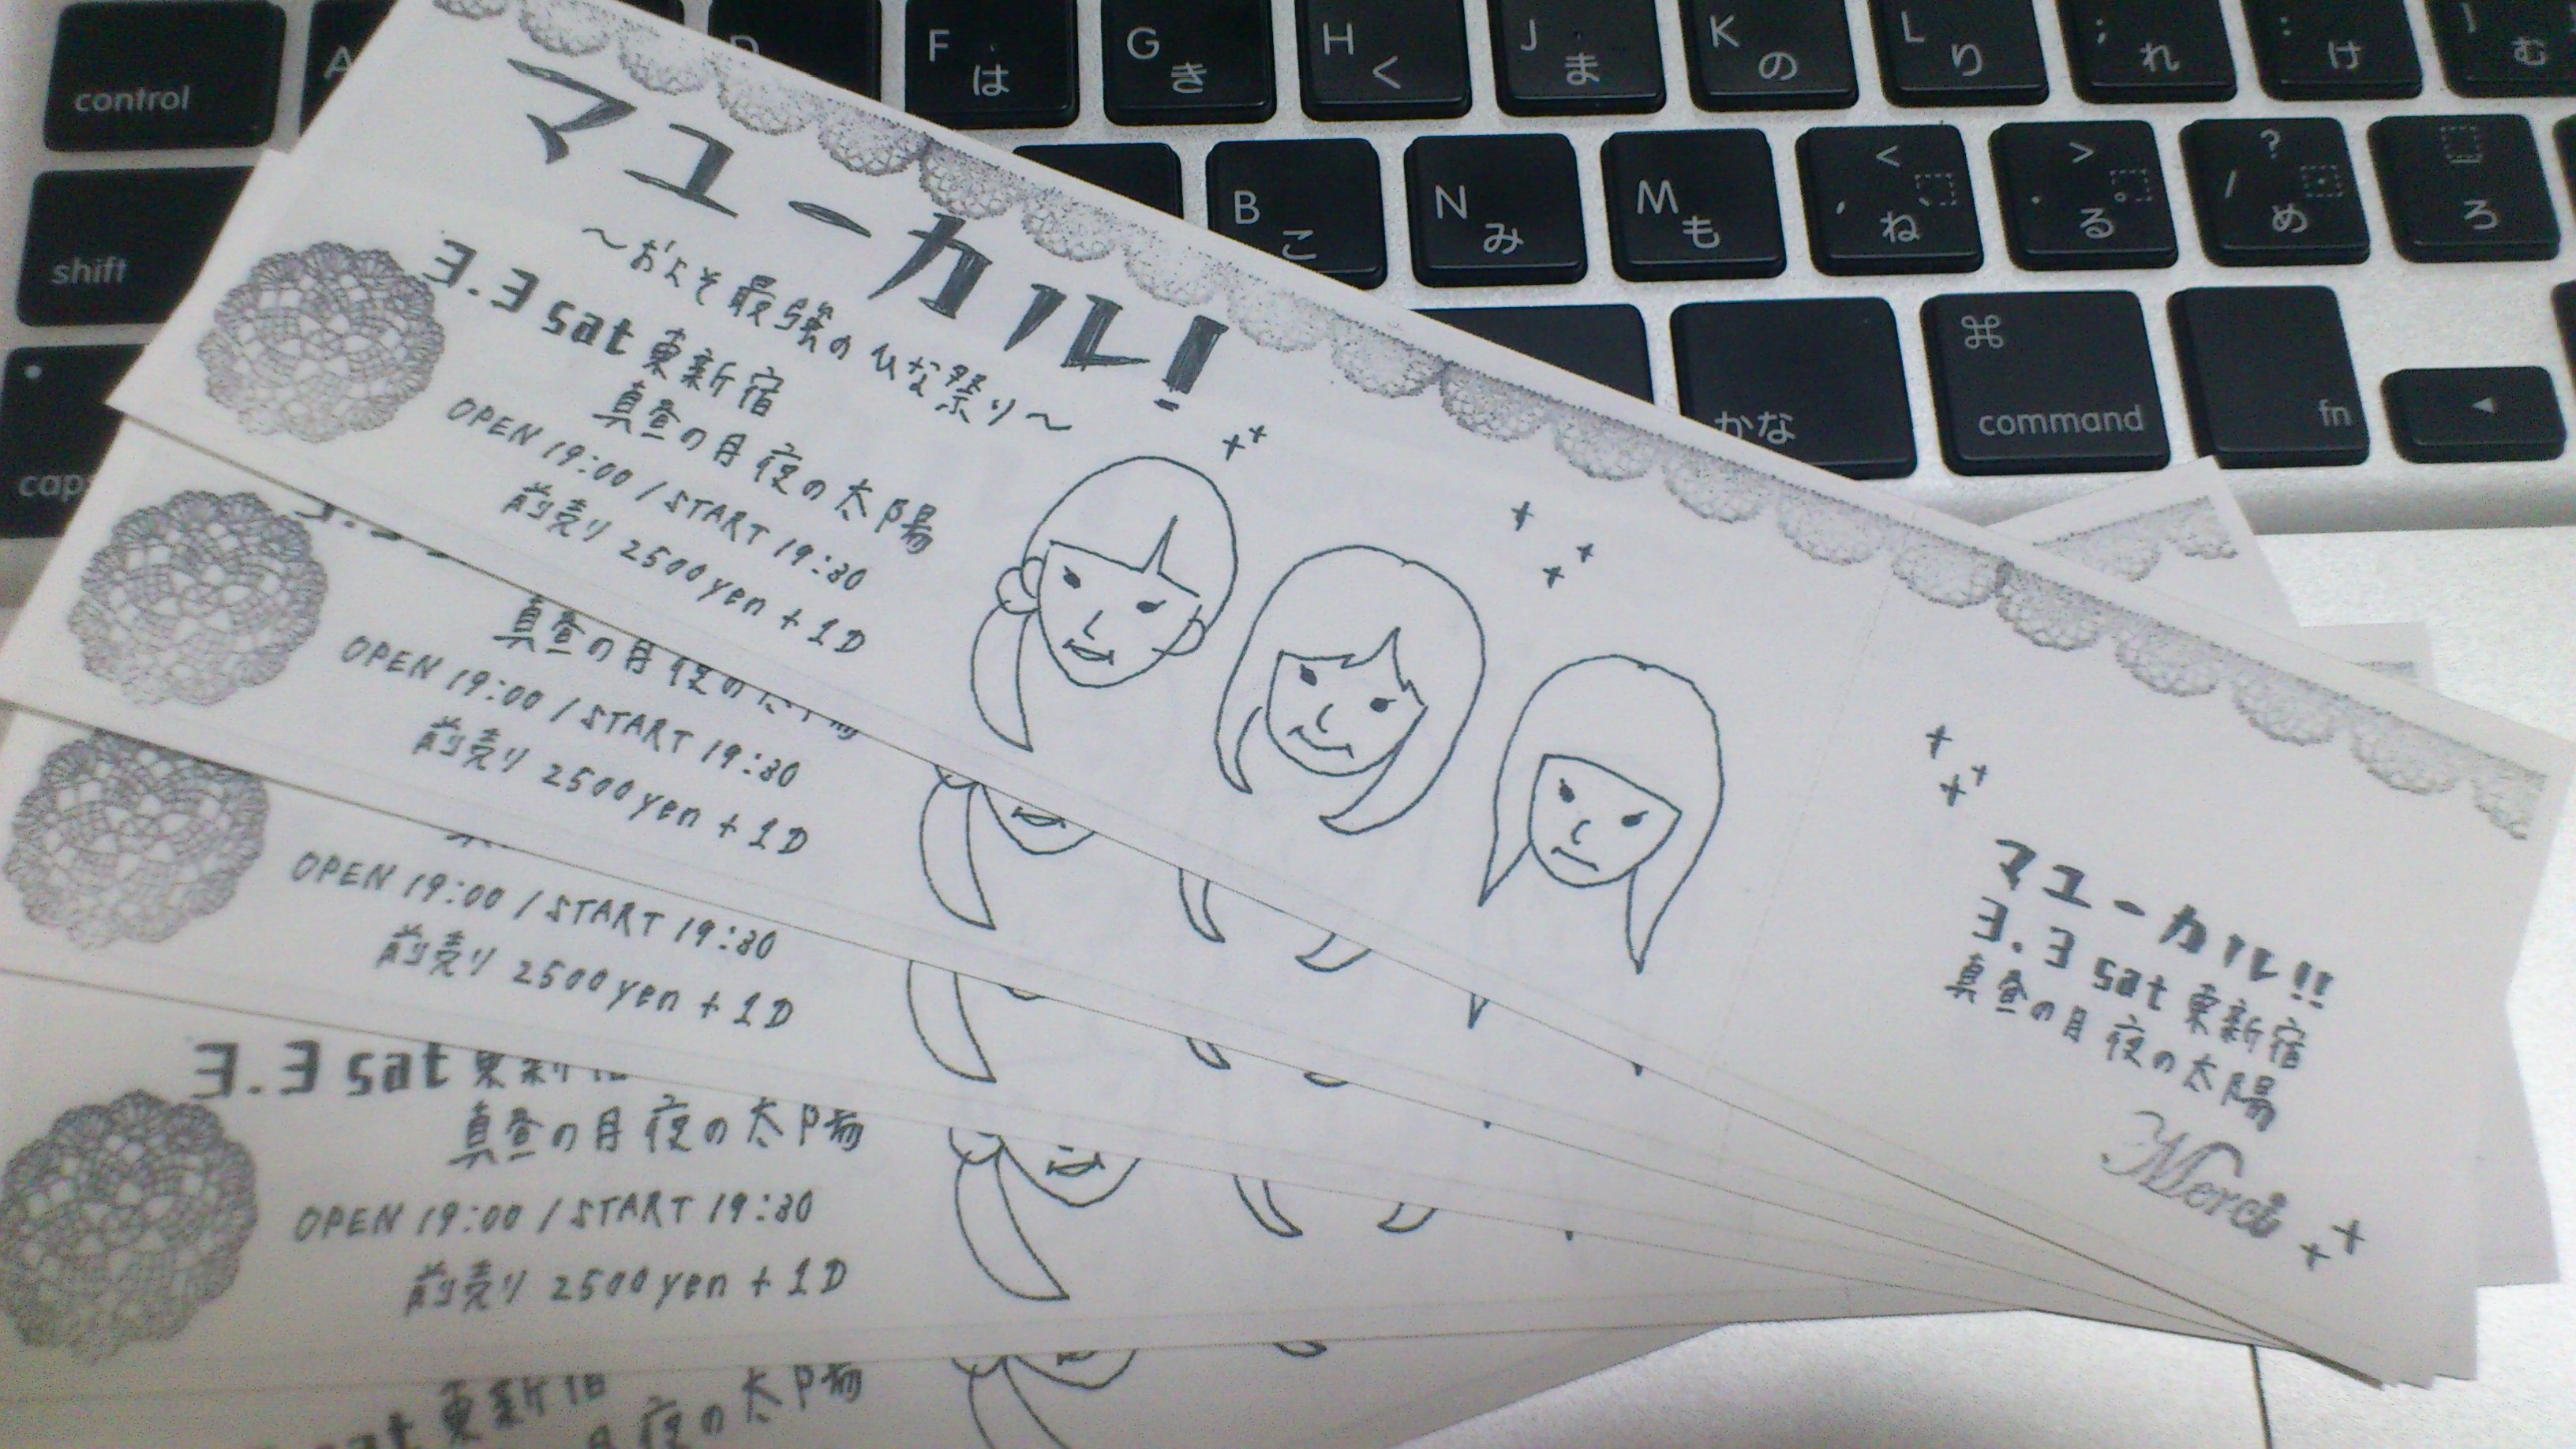 control
A
D
F は
G き
H く
J ま
K の
L り
; れ
: け
] む
shift
B こ
N み
M も
< , ね 、
> . る 。
? / め ・
ろ
caps
かな
⌘ command
fn
◀
マユーカル!
〜およそ最強のひな祭り〜
3.3 sat 東新宿
真昼の月夜の太陽
OPEN 19:00 / START 19:30
前売り 2500yen + 1D
マユーカル!!
3.3 sat 東新宿
真昼の月夜の太陽
Merci
真昼の月夜の
OPEN 19:00 / START 19:30
前売り 2500yen + 1D
OPEN 19:00 / START 19:30
前売り 2500yen + 1D
3.3 sat 東新宿
真昼の月夜の太陽
OPEN 19:00 / START 19:30
前売り 2500yen + 1D
sat 東新宿
月夜の太陽